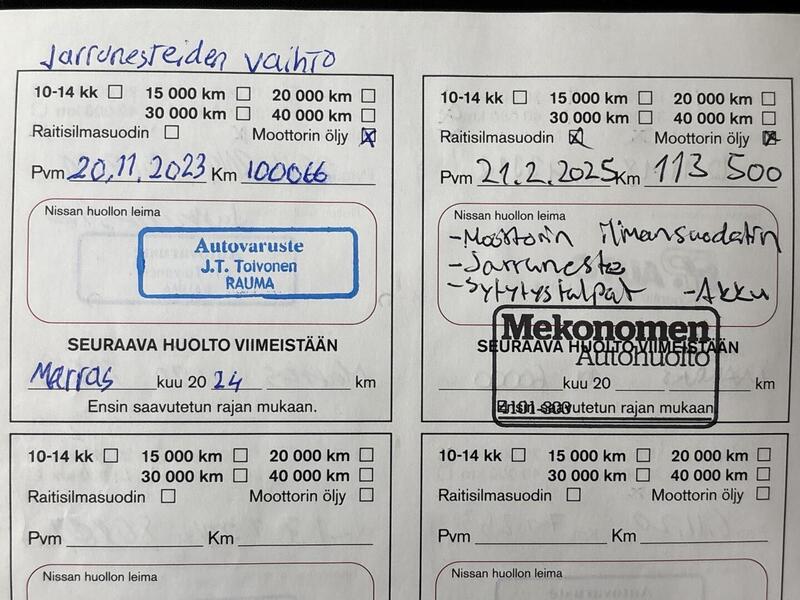 Jarrunesteiden vaihto
10-14 kk 15 000 km 20 000 km
30 000 km 40 000 km
Raitisilmasuodin Moottorin öljy
Pvm 20.11.2023 Km 100066
Nissan huollon leima
Autovaruste
J.T. Toivonen
RAUMA
SEURAAVA HUOLTO VIIMEISTÄÄN
Marras kuu 20 24 km
Ensin saavutetun rajan mukaan.
10-14 kk 15 000 km 20 000 km
30 000 km 40 000 km
Raitisilmasuodin Moottorin öljy
Pvm 21.2.2025 Km 113 500
Nissan huollon leima
-Moottorin ilmansuodatin
-Jarruneste
-Sytytystulpat -Akku
Mekonomen
Autohuolto
SEURAAVA HUOLTO VIIMEISTÄÄN
kuu 20 km
Ensin saavutetun rajan mukaan.
10-14 kk 15 000 km 20 000 km
30 000 km 40 000 km
Raitisilmasuodin Moottorin öljy
Pvm Km
Nissan huollon leima
10-14 kk 15 000 km 20 000 km
30 000 km 40 000 km
Raitisilmasuodin Moottorin öljy
Pvm Km
Nissan huollon leima